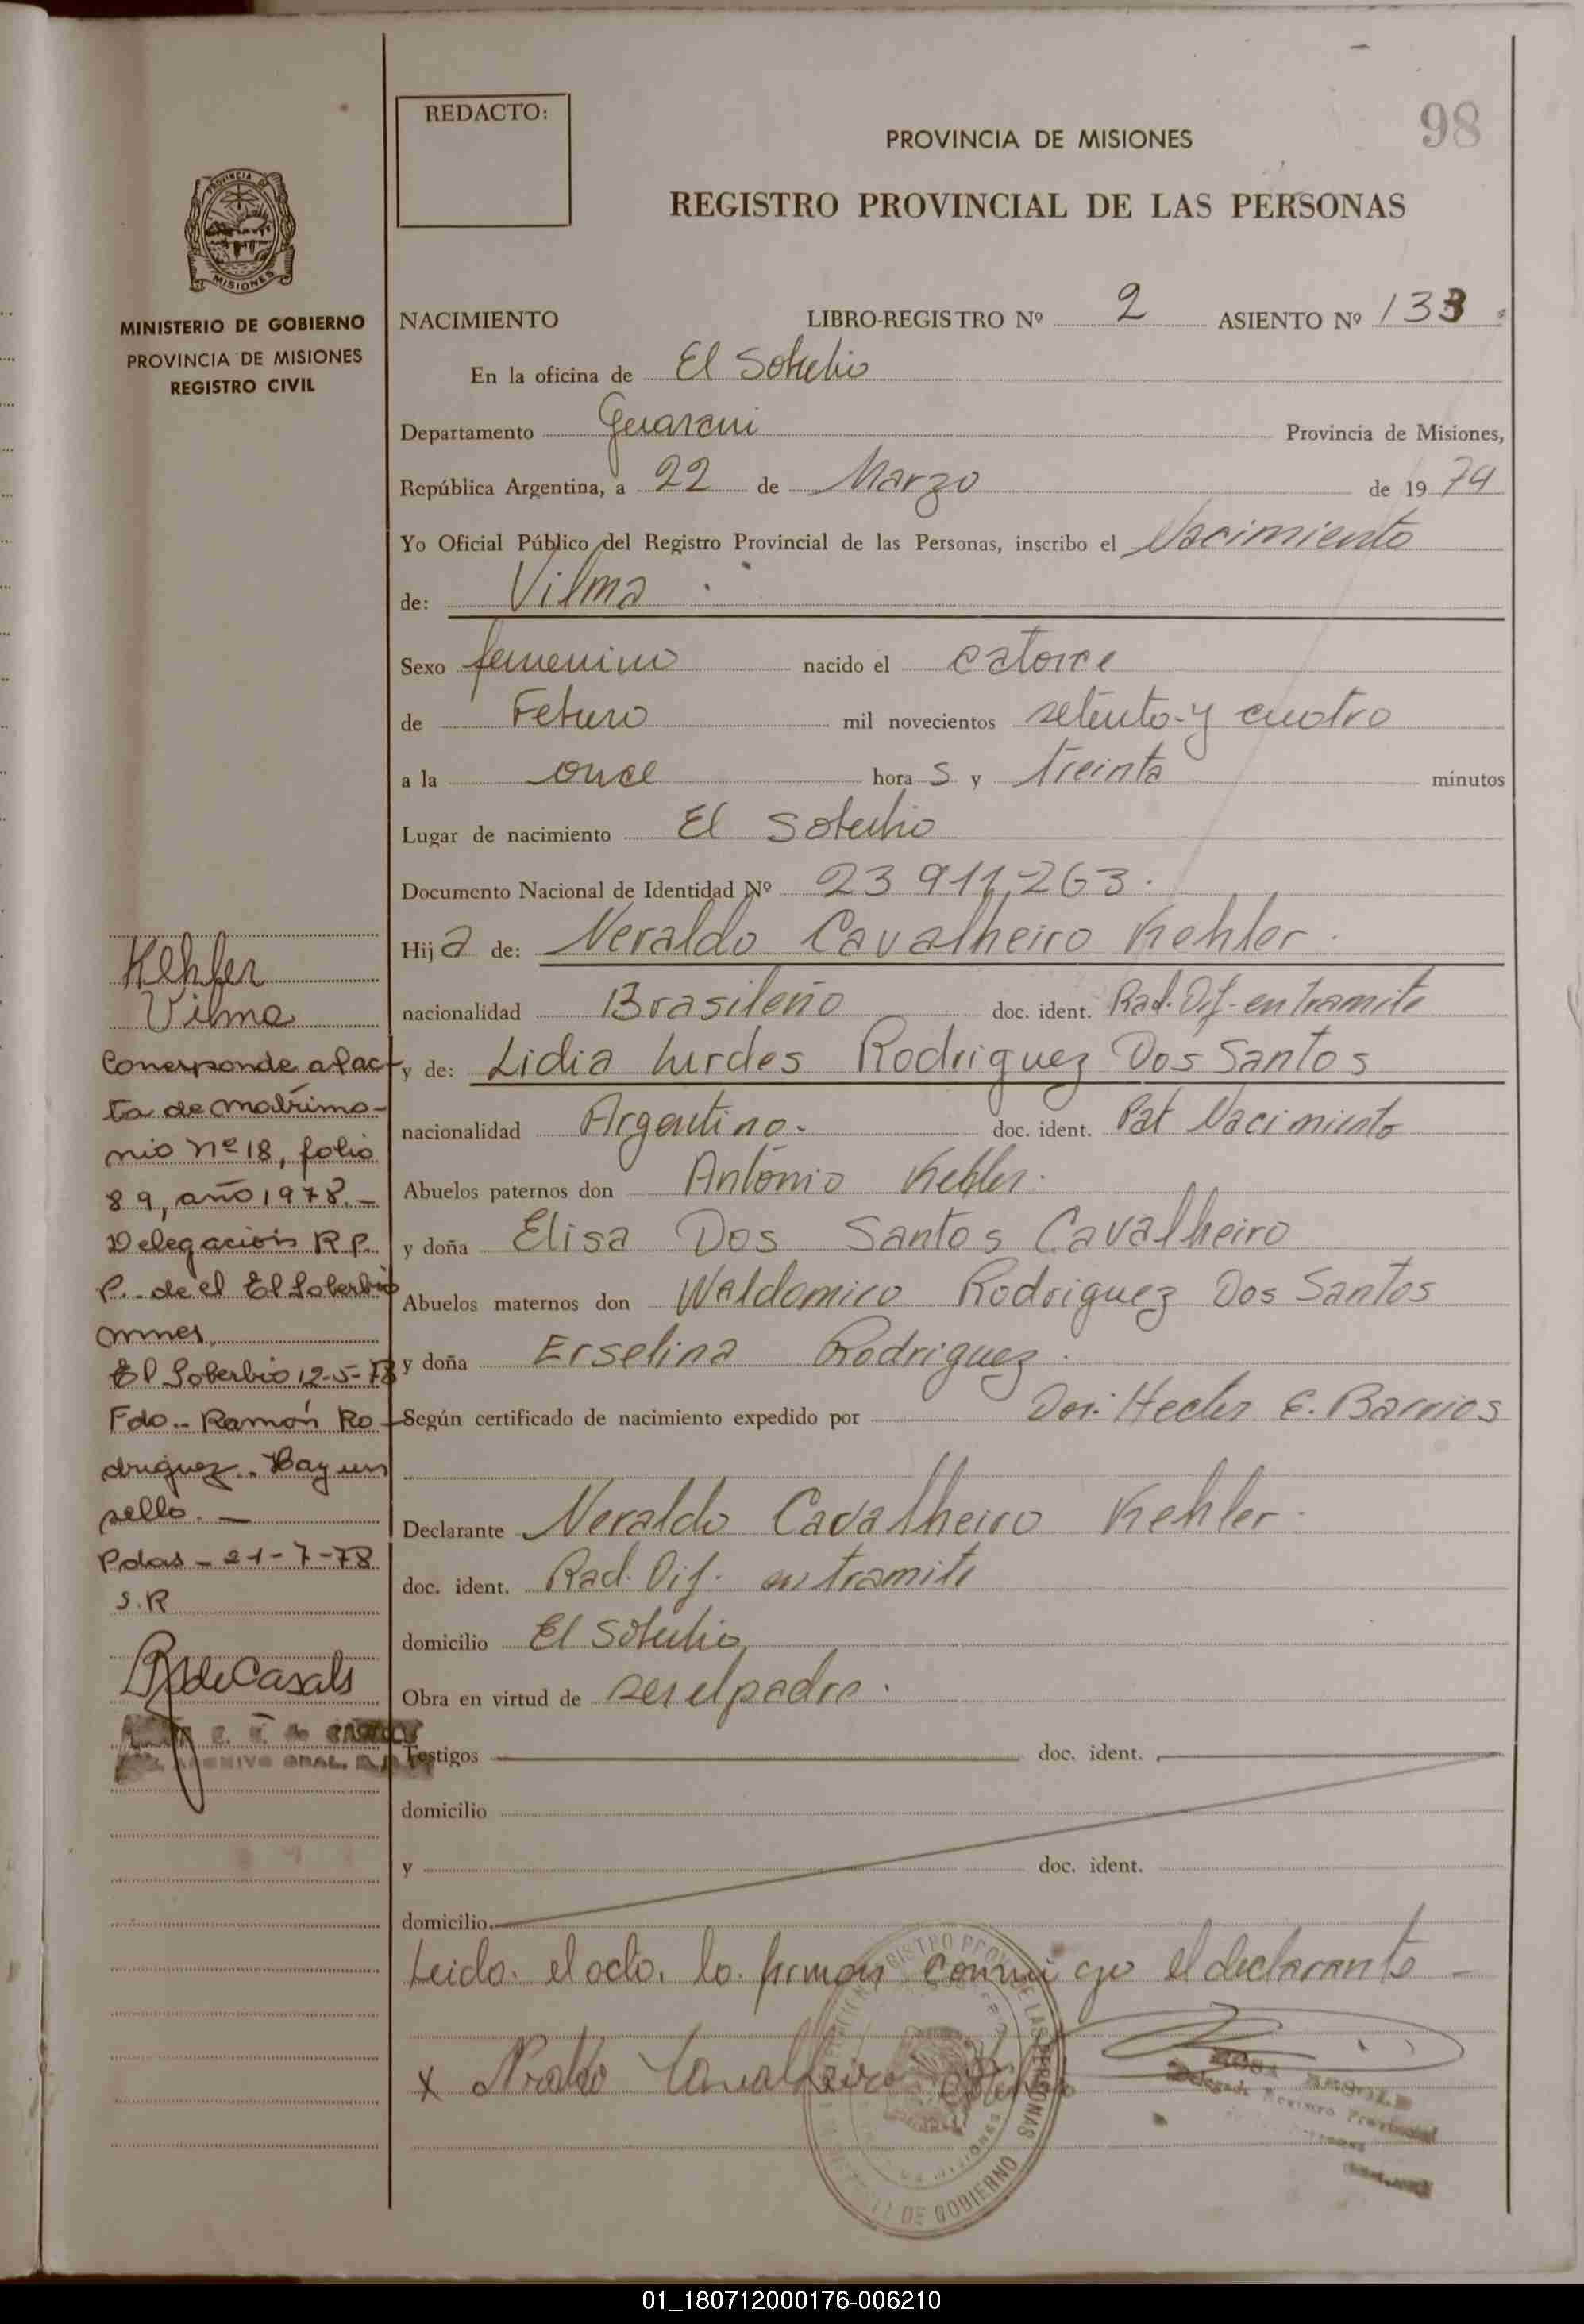 REDACTO:
98
PROVINCIA DE MISIONES
REGISTRO PROVINCIAL DE LAS PERSONAS
PROVINCIA DE
MISIONES
MINISTERIO DE GOBIERNO
PROVINCIA DE MISIONES
REGISTRO CIVIL
NACIMIENTO LIBRO-REGISTRO Nº 2 ASIENTO Nº 133
En la oficina de El Soberbio
Departamento Guarani Provincia de Misiones,
República Argentina, a 22 de Marzo de 1974
Yo Oficial Público del Registro Provincial de las Personas, inscribo el Nacimiento
de: Vilma
Sexo femenino nacido el catorce
de Febrero mil novecientos setenta y cuatro
a la once hora s y treinta minutos
Lugar de nacimiento El Soberbio
Documento Nacional de Identidad Nº 23 911,263.
Hij a de: Neraldo Cavalheiro Kehler.
nacionalidad Brasileño doc. ident. Rad. Dif. en tramite
y de: Lidia Lurdes Rodriguez Dos Santos
nacionalidad Argentina. doc. ident. Pat Nacimiento
Abuelos paternos don Antonio Kehler.
y doña Elisa Dos Santos Cavalheiro
Abuelos maternos don Waldomiro Rodriguez Dos Santos
y doña Erselina Rodriguez.
Según certificado de nacimiento expedido por Hector E. Barrios
Declarante Neraldo Cavalheiro Kehler.
doc. ident. Rad. Dif. en tramite
domicilio El Soberbio
Obra en virtud de ser el padre.
Testigos doc. ident.
domicilio
y doc. ident.
domicilio
Leido el acta, la firman conmigo el declarante -
x Neraldo Cavalheiro Kehler
Kehler
Vilma
Corresponde al ac-
ta de matrimo-
nio nº 18, folio
89, año 1978.-
Delegación R.P.
P. de el El Soberbio
mnes,
El Soberbio 12-5-78
Fdo.- Ramón Ro-
driguez.. Hay un
sello.-
Pdas - 21-7-78
S.R
de Casals
ARCHIVO GRAL.
DE GOBIERNO
01_180712000176-006210